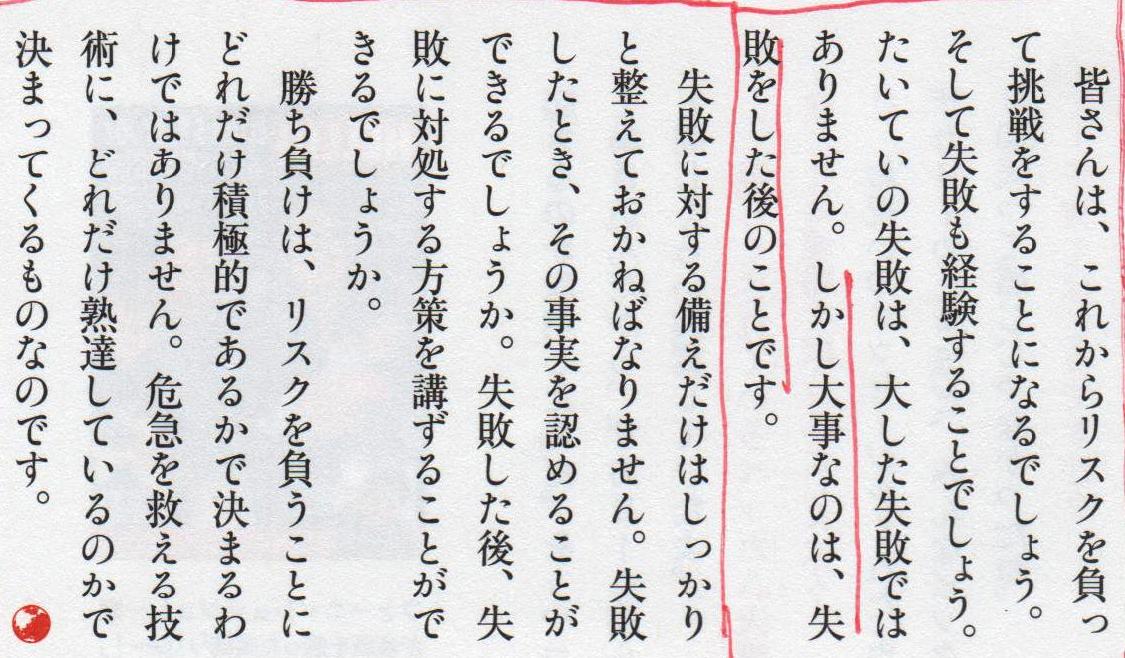 皆さんは、これからリスクを負っ
て挑戦をすることになるでしょう。
そして失敗も経験することでしょう。
たいていの失敗は、大した失敗では
ありません。しかし大事なのは、失
敗をした後のことです。
失敗に対する備えだけはしっかり
と整えておかねばなりません。失敗
したとき、その事実を認めることが
できるでしょうか。失敗した後、失
敗に対処する方策を講ずることがで
きるでしょうか。
勝ち負けは、リスクを負うことに
どれだけ積極的であるかで決まるわ
けではありません。危急を救える技
術に、どれだけ熟達しているのかで
決まってくるものなのです。